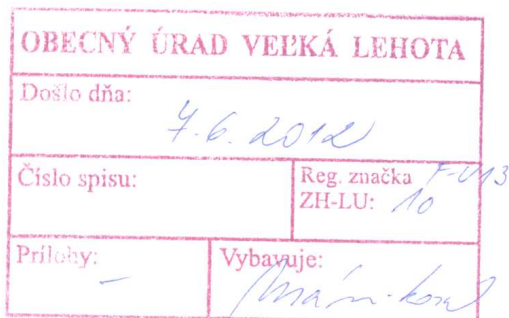 OBECNÝ ÚRAD VEĽKÁ LEHOTA
Došlo dňa:
7.6.2012
Číslo spisu:
Reg. značka F-U13
ZH-LU: 10
Prílohy:
Vybavuje:
-